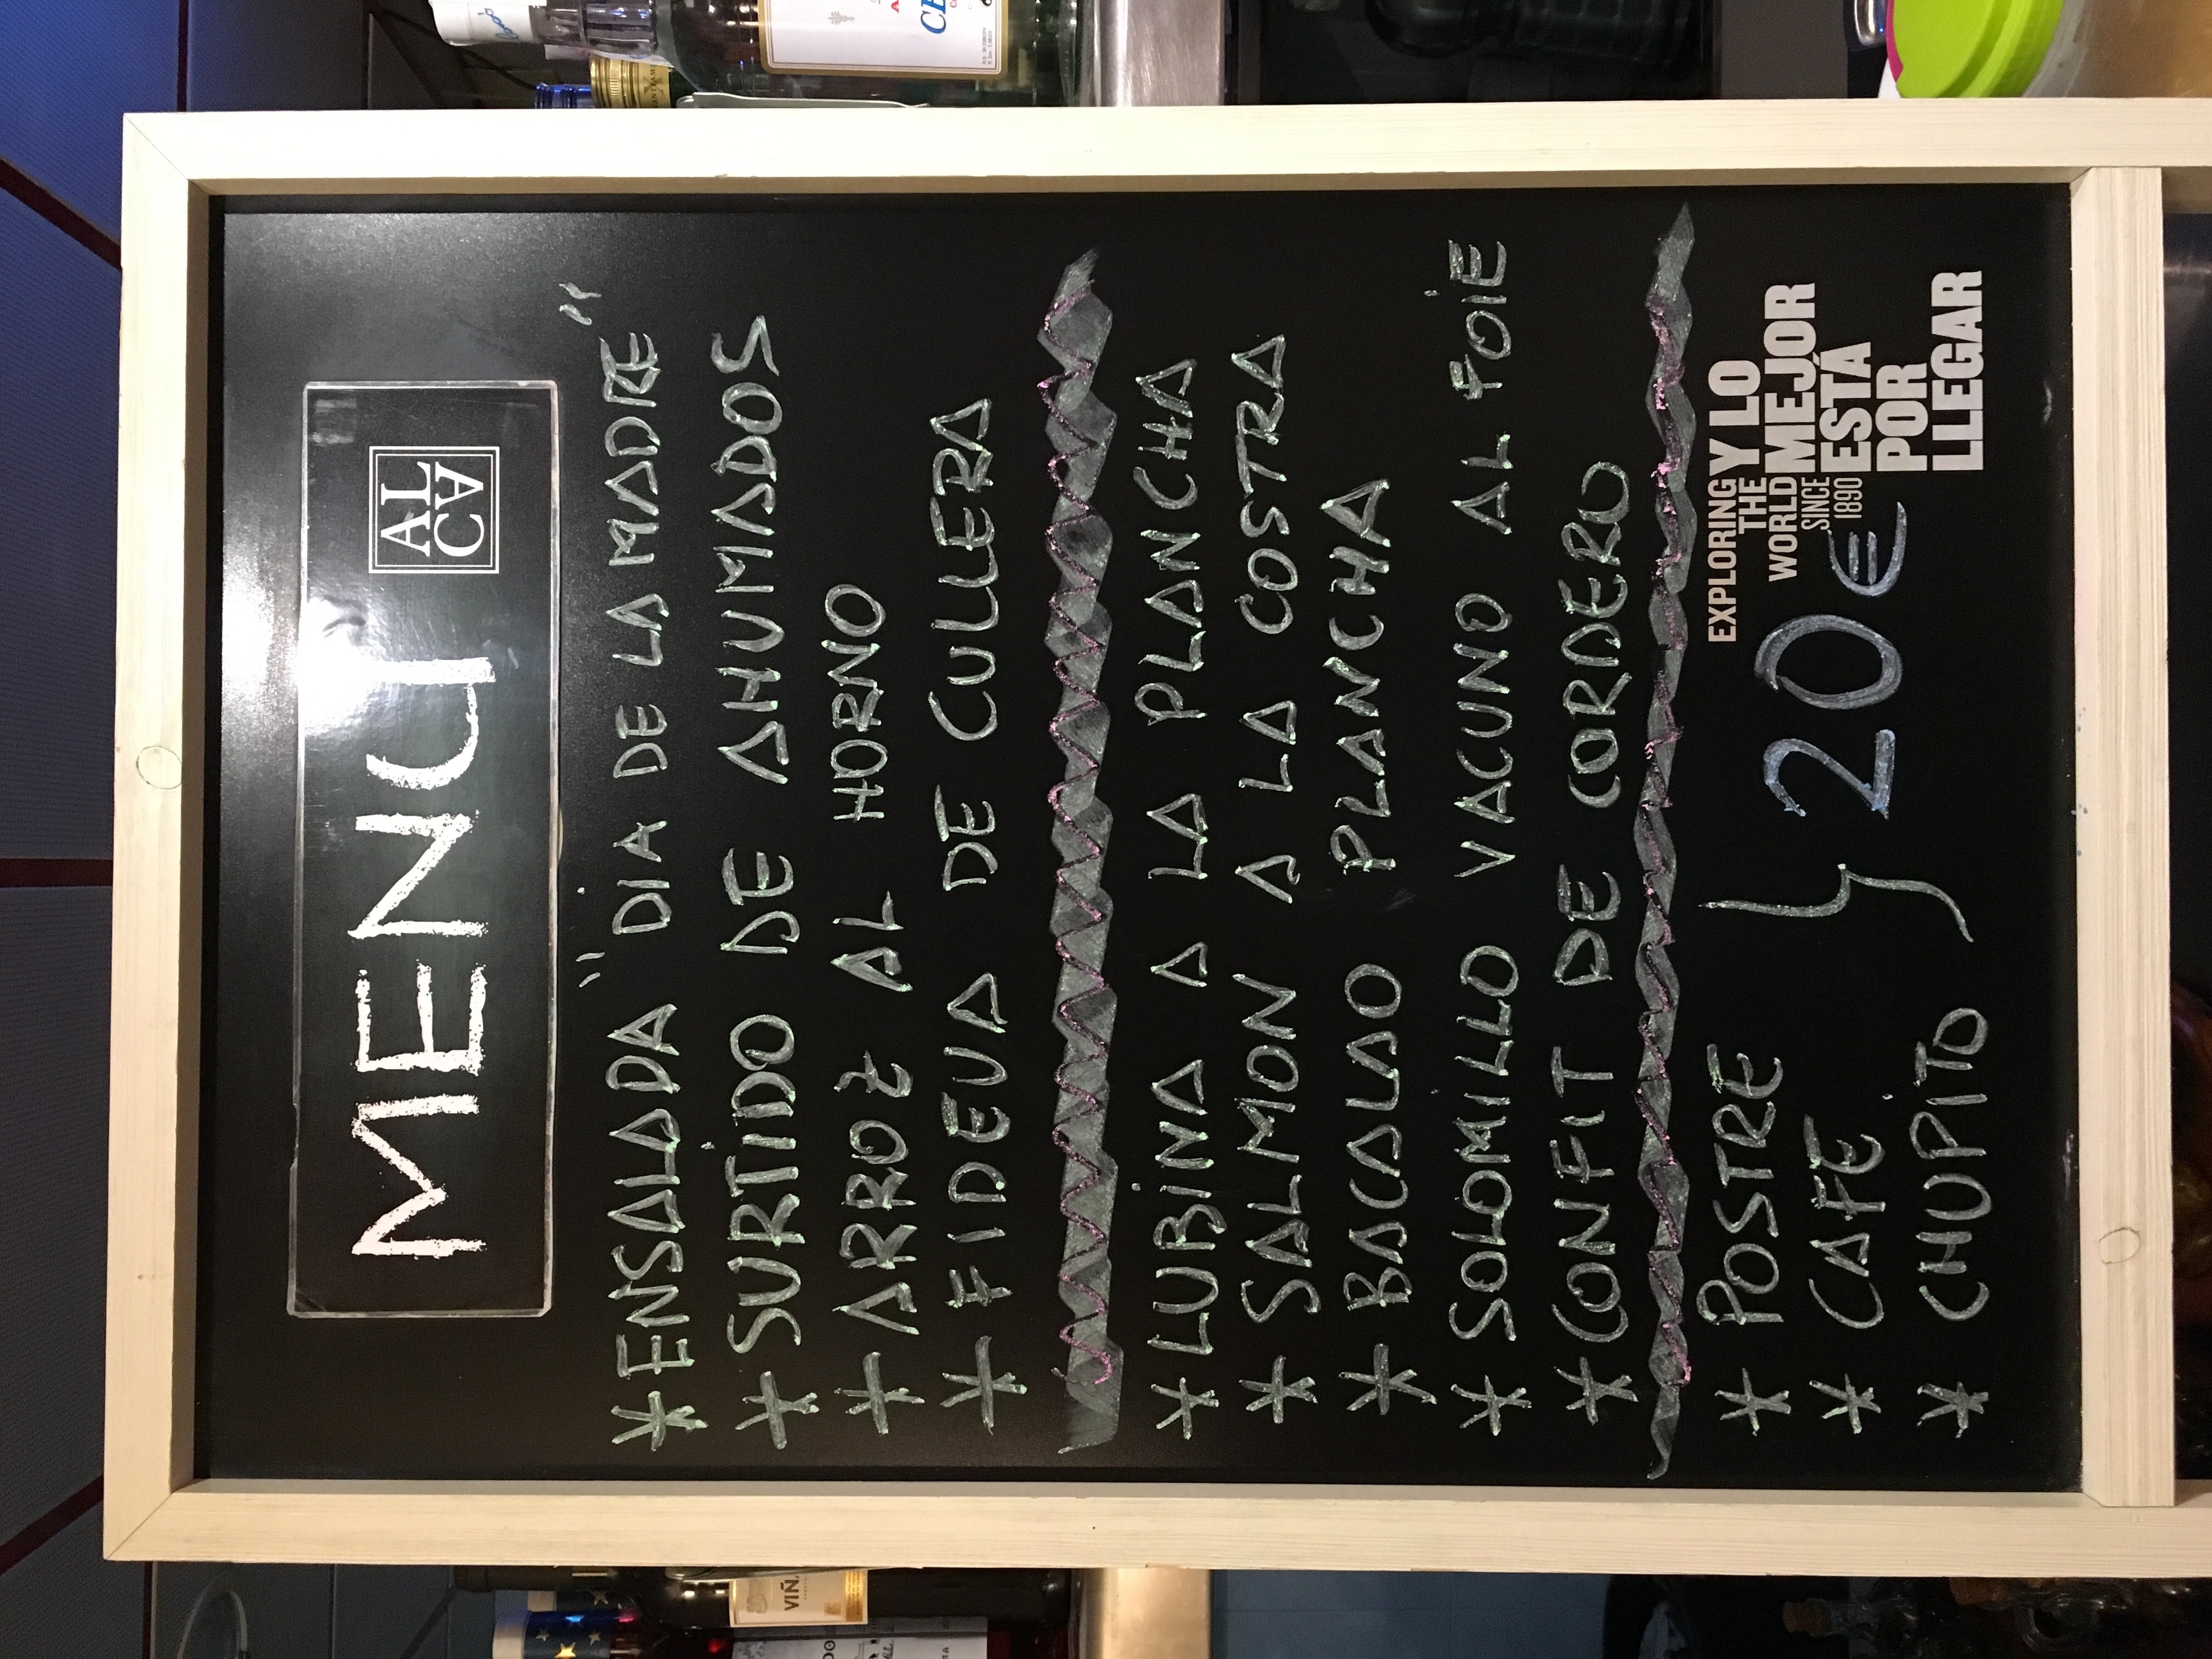 MENÚ
AL
CA
*ENSALADA "DIA DE LA MADRE"
*SURTIDO DE AHUMADOS
*ARROZ AL HORNO
*FIDEUA DE CULLERA
*LUBINA A LA PLANCHA
*SALMON A LA COSTRA
*BACALAO PLANCHA
*SOLOMILLO VACUNO AL FOIE
*CONFIT DE CORDERO
*POSTRE
*CAFÉ
*CHUPITO
20€
EXPLORING
THE
WORLD
SINCE
1890
Y LO
MEJOR
ESTÁ
POR
LLEGAR
VIÑ